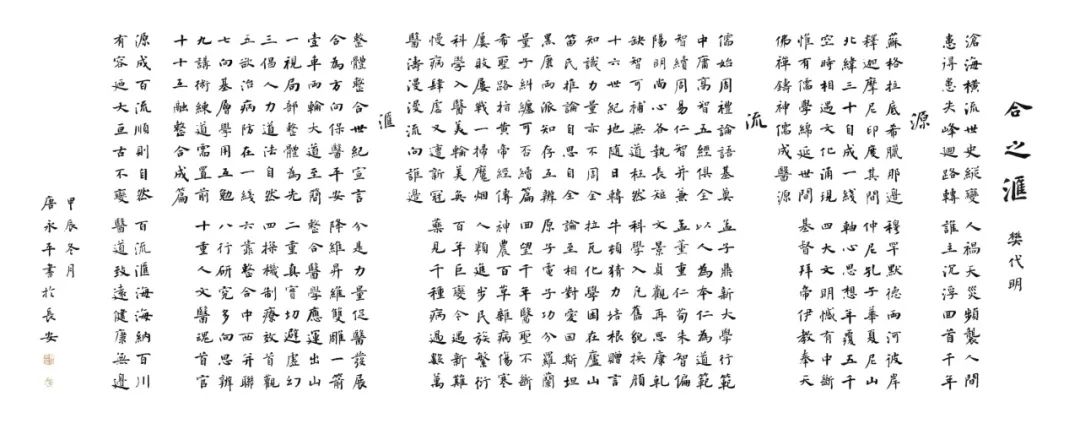 合之滙 樊代明
滄海横流世史縱變 人禍天災頻襲人間
患得患失峰迴路轉 誰主沉浮回首千年
源
蘇格拉底希臘那邊 穆罕默德兩河彼岸
釋迦摩尼印度其間 仲尼孔子華夏尼山
北緯三十自成一綫 軸心思想年覆五千
空時相遇文化涌現 四大文明憾有中斷
惟有儒學綿延世間 基督拜帝伊教奉天
佛禪鑄神儒成醫源
流
儒始周禮論語基奠 孟子鼎新大學行範
中庸高智五經俱全 以人為本仁為道範
智續周易仁智并兼 孟董重仁荀朱智偏
陽明尚心各執長短 文景貞觀再思
缺智可補無道枉然 科學入凡舊貌换顔
十六世紀地隨日轉 牛頓猜力培根贈言
知識力量亦不同全 拉瓦化學困在廬山
笛民推論自思自全 論至相對愛因斯坦
黑庚兩派知存互辨 原子電子功分羅蘭
量子糾纏可否續篇 四望千年醫聖不斷
希聖路柏黄帝經傳 神農百草雜病傷寒
屢敗屢戰一掃魔烟 人類進步民族繁衍
科學入醫美輪美奂 百年巨變令過新難
慢病肆虐又遭新冠 藥見千種病過數萬
醫濤漫漫流向誰邊
滙
整體整合世紀宣言 分是力量促醫發展
合為方向保醫平安 降維昇維雙雕一箭
壹車兩輪大道至簡 整合醫學應運出山
一視局部整體為先 二重真實切避虚幻
三倡人力道法自然 四操機制療效首觀
五欲治病防在一綫 六靠整合中西并聯
七向基層學用五勉 八行研究多向思辨
九講術練道需置前 十重人文醫魂首官
十十互融整合成篇
源成百流順則自然 百流滙海海納百川
有容迺大亘古不變 醫道致遠健康無邊
甲辰冬月
唐永平書於長安